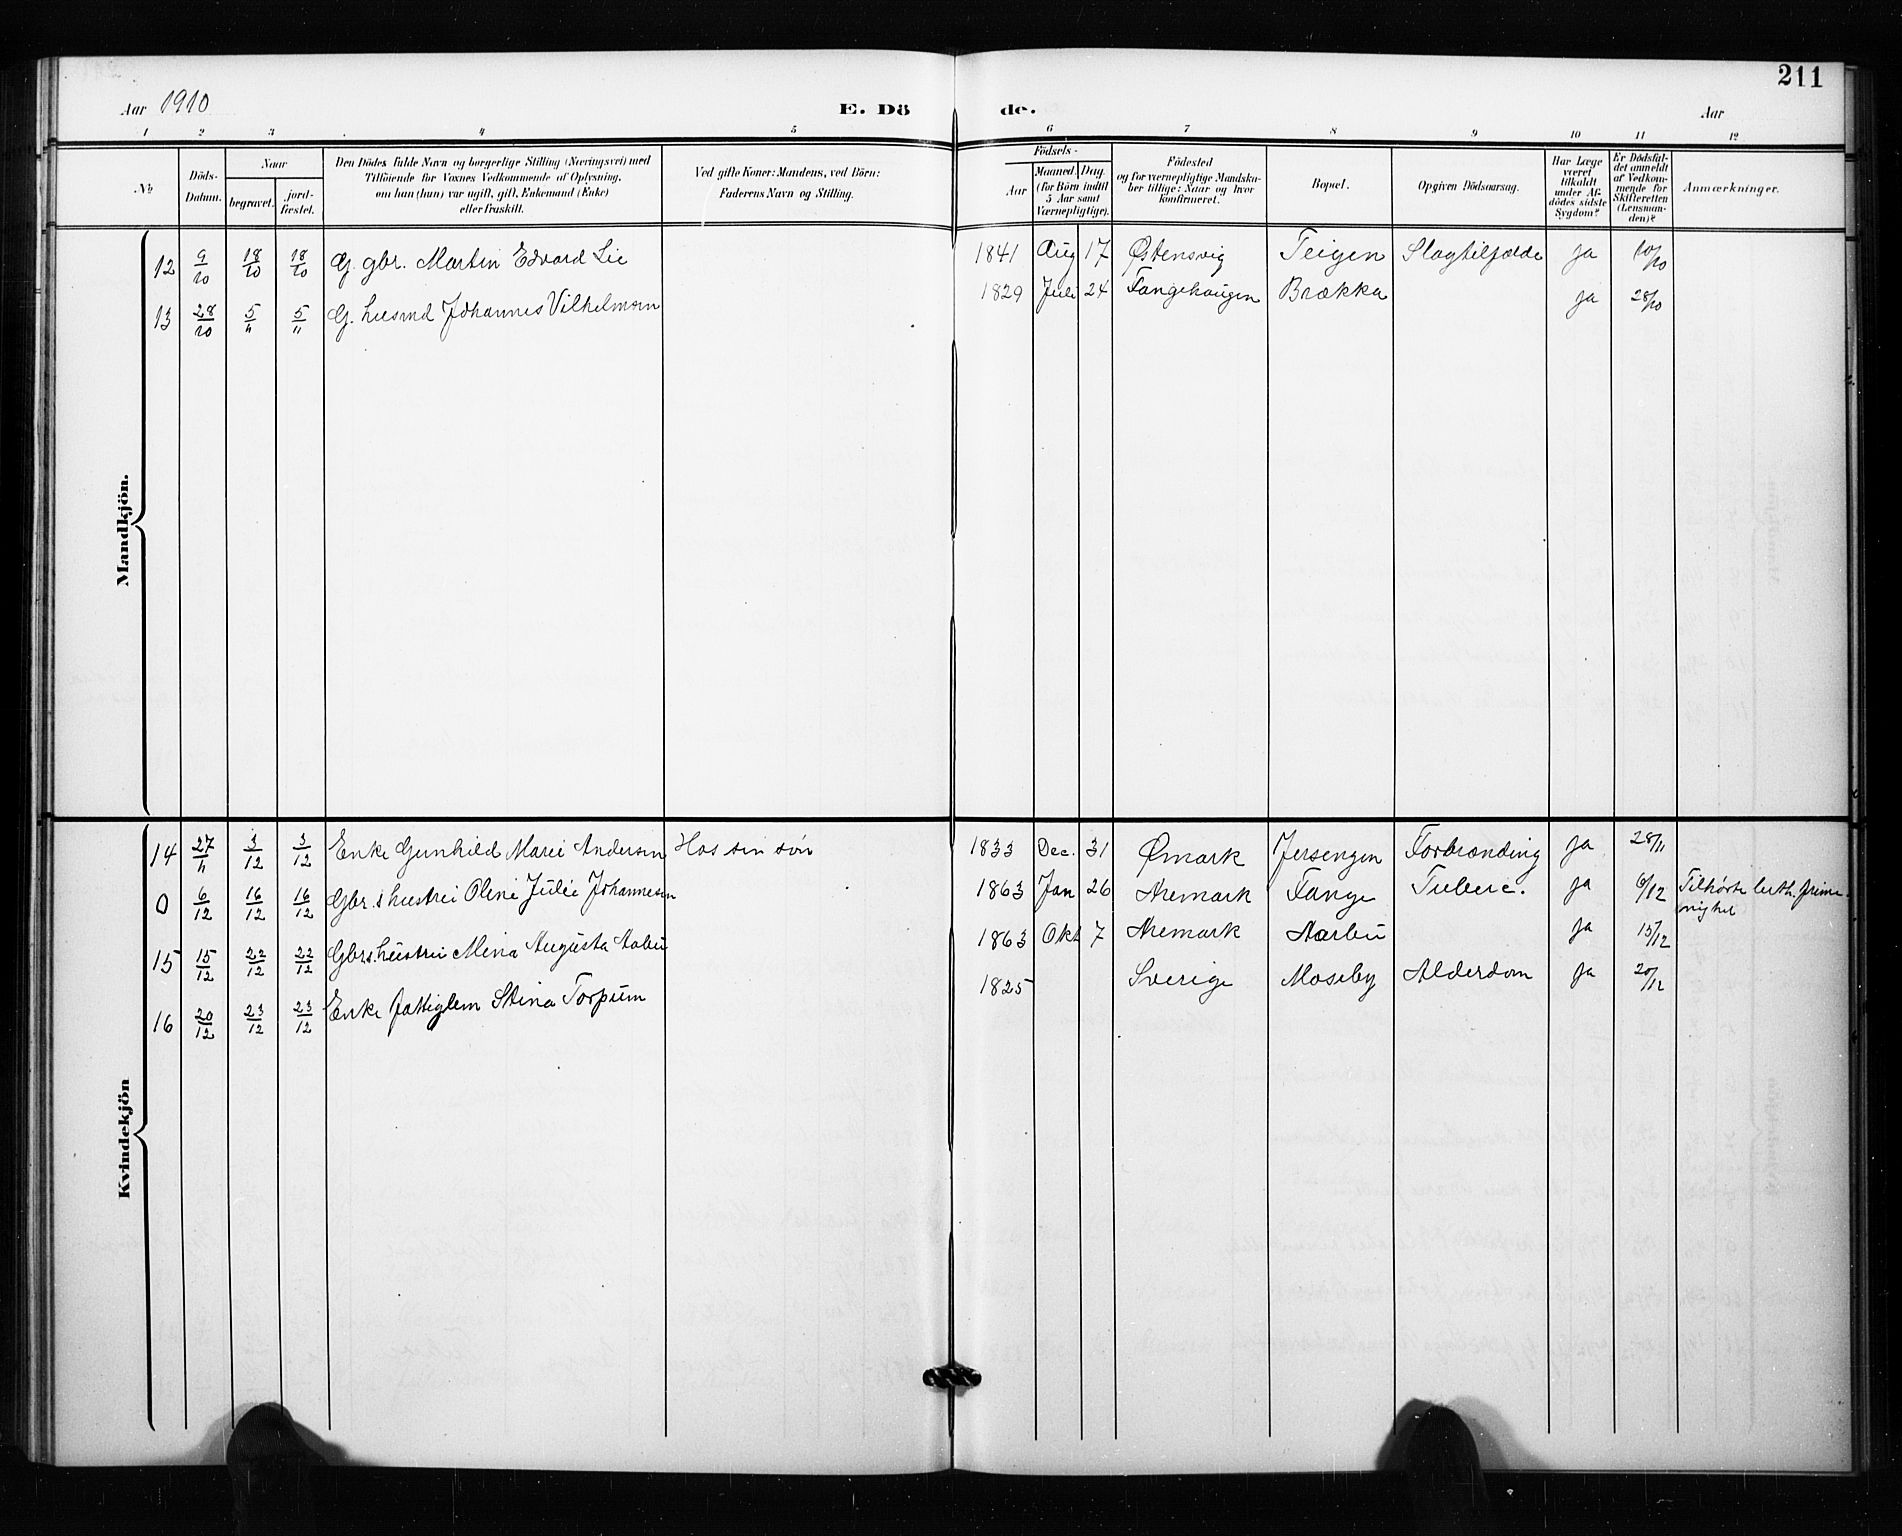 211
Aar 1910 E. Dö de. Aar
1 2 3 4 5 6 7 8 9 10 11 12
No
Döds-
Datum.
Naar
begravet.
jord-
fæstet.
Den Dödes fulde Navn og borgerlige Stilling (Næringsvei) med
Tilföiende for Voxnes Vedkommende af Oplysning,
om han (hun) var ugift, gift, Enkemand (Enke)
eller fraskilt.
Ved gifte Koner: Mandens, ved Börn:
Faderens Navn og Stilling.
Födsels-
Aar
Maaned. Dag
(for Börn indtil
5 Aar samt
Værnepligtige).
Födested
og for værnepligtige Mandska-
ber tillige: Naar og hvor
konfirmeret.
Bopæl.
Opgiven Dödsaarsag.
Har Læge
været
tilkaldt
under Af-
dödes sidste
Sygdom?
Er Dödsfal-
det anmeldt
af Vedkom-
mende for
Skifteretten
(Lensman-
den)?
Anmærkninger.
Mandkjön.
12 9/10 18/10 18/10 G. gbr. Martin Edvard Lie 1841 Aug 17 Østensvig Teigen Slagtilfælde ja 10/10
13 28/10 5/11 5/11 G. husmd Johannes Vilhelmsen 1829 Juli 24 Tangehaugen Brække ja 28/10
Kvindekjön
14 27/11 3/12 3/12 Enke Gunhild Marie Andersen Hos sin søn 1833 Dec. 31 Ømark Jersengen Forbrænding ja 28/11
0 6/12 16/12 16/12 Gbr.s hustru Oline Julie Johannesen 1863 Jan 26 Aremark Tange Tuberc. ja 6/12 Tilhørte luth. frime-
nighet
15 15/12 22/12 22/12 Gbrs. hustru Mina Augusta Aabu 1863 Okt 7 Aremark Aarbu ja 15/12
16 20/12 23/12 23/12 Enke fattiglem Stina Torpum 1825 Sverige Moseby Alderdom ja 20/12